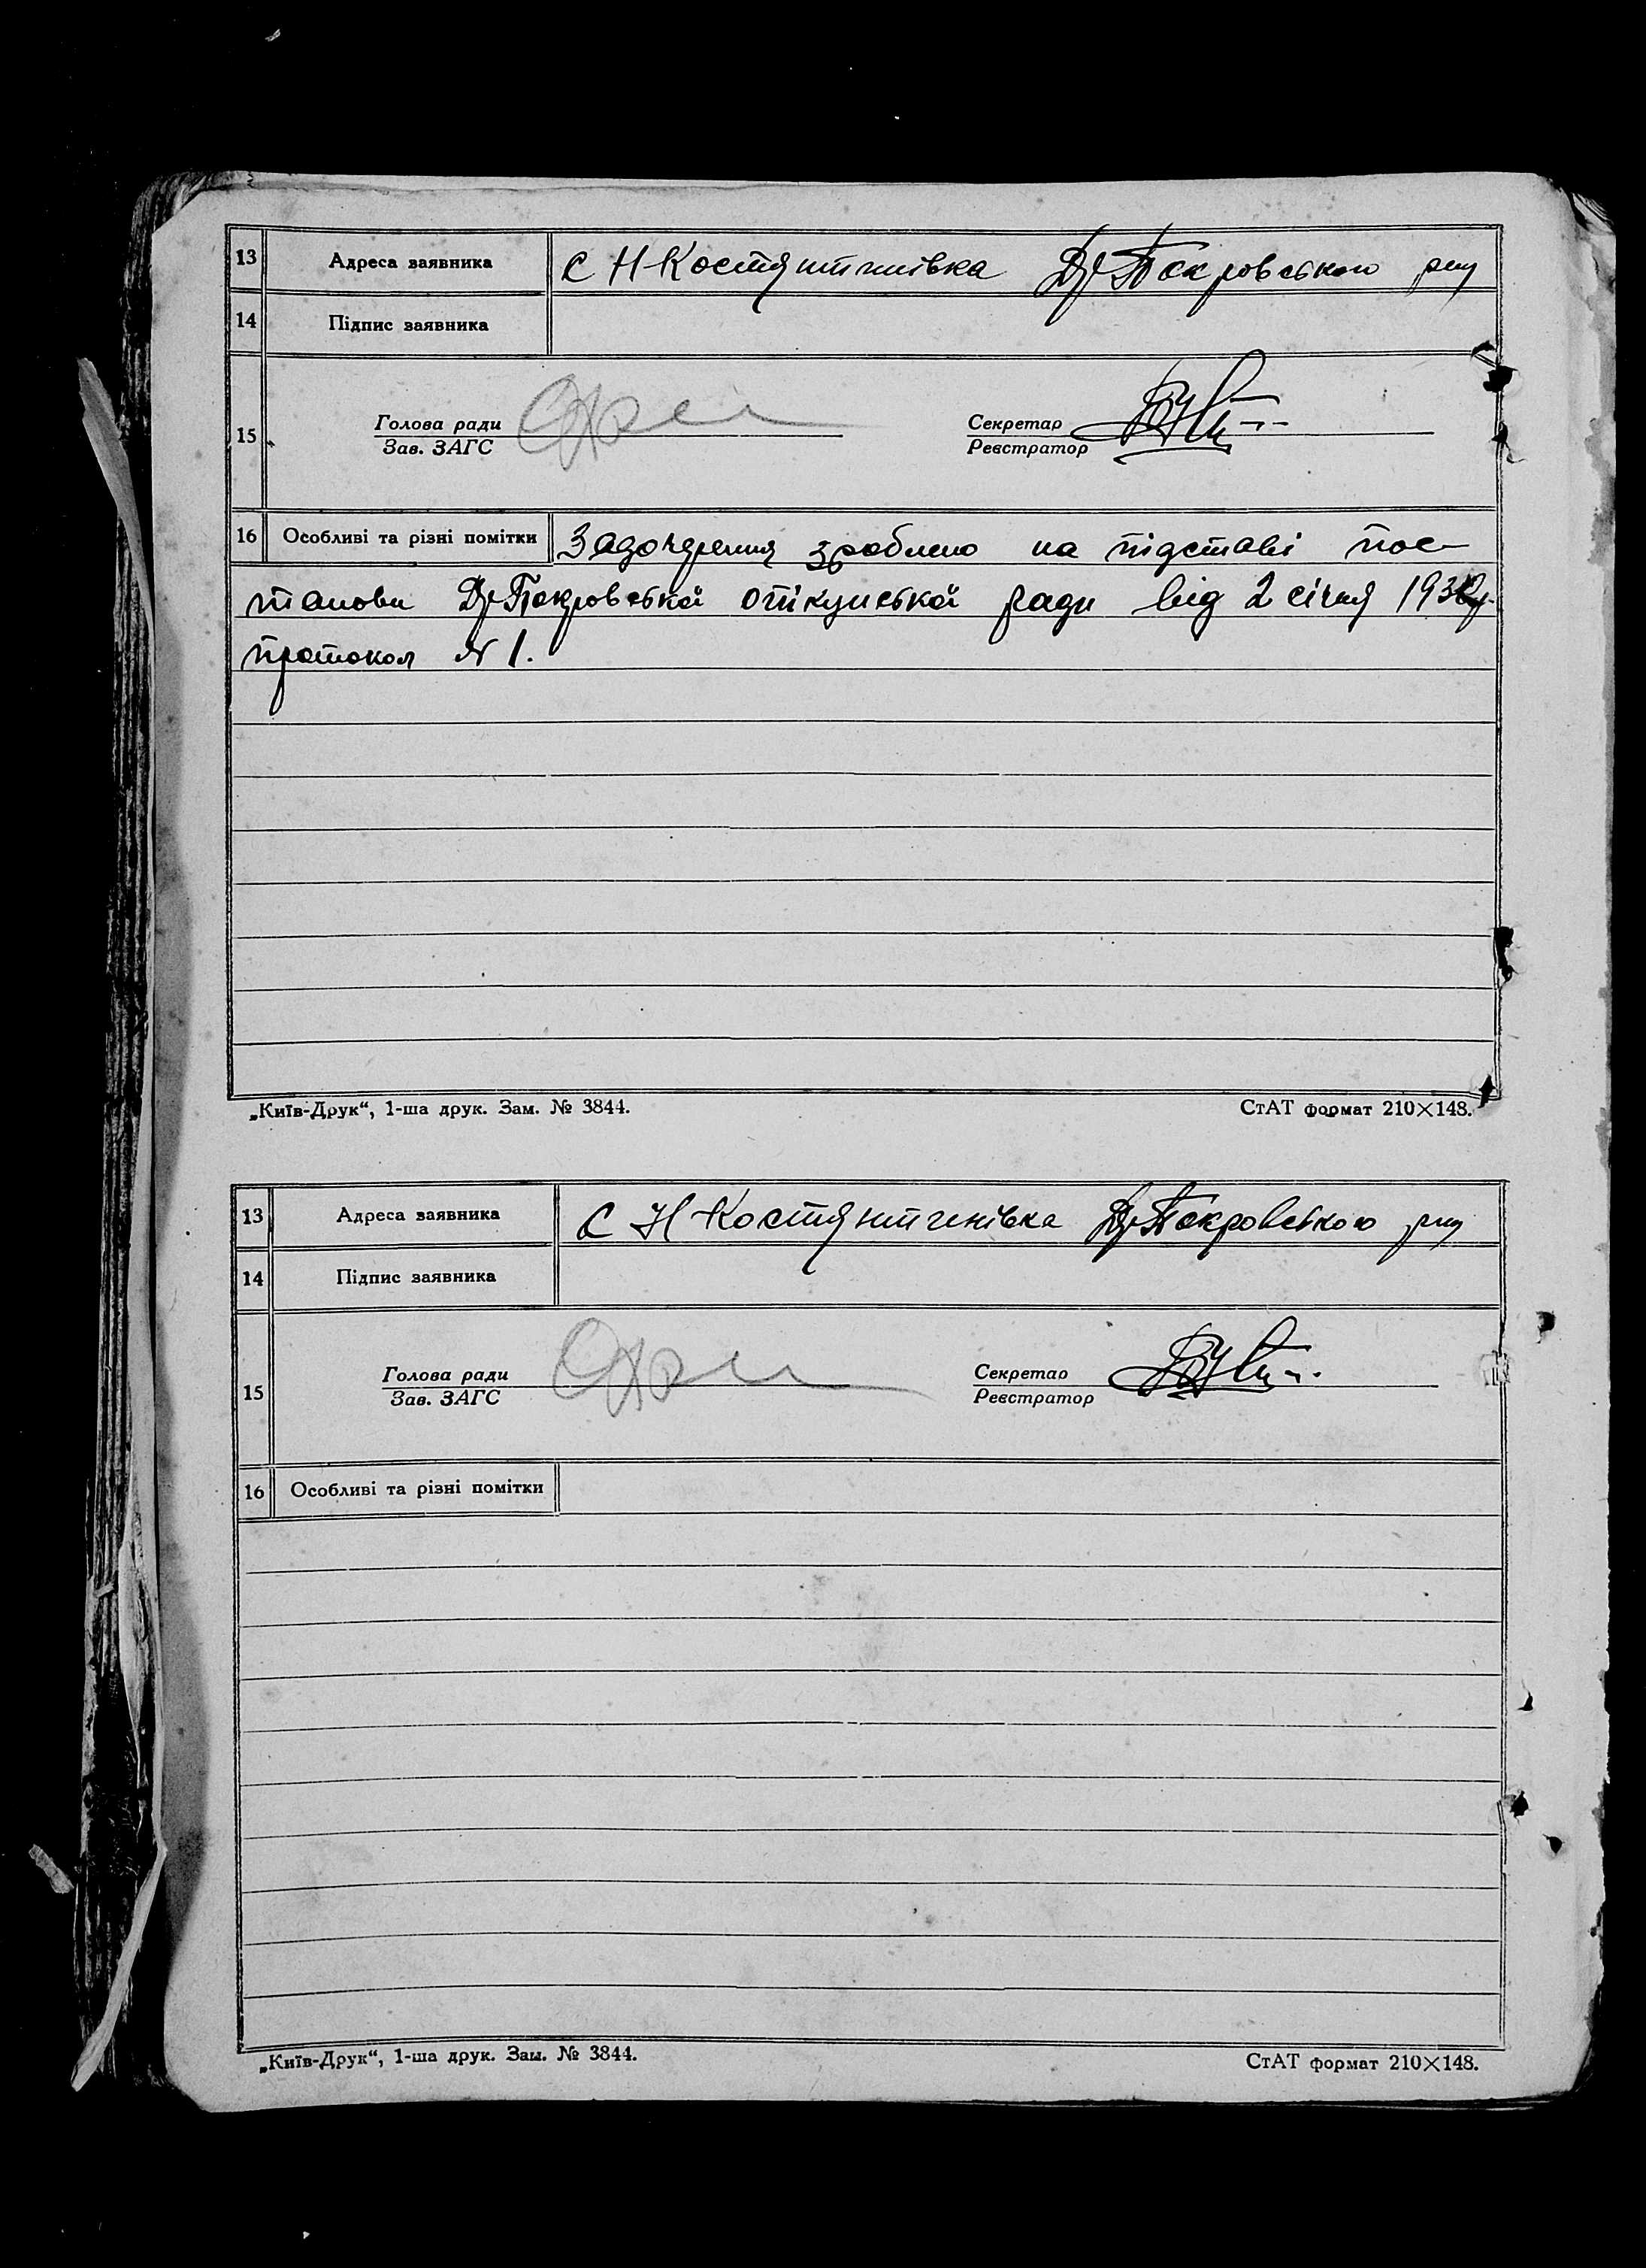 13 Адреса заявника С Н-Костянтинівка Др Покровського р-ну
14 Підпис заявника
15 Голова ради Секретар
Зав. ЗАГС Реєстратор
16 Особливі та різні помітки зроблено на підставі пос-
танови Др Покровської опікунської ради від 2 січня
протокол № 1.
„Київ-Друк“, 1-ша друк. Зам. № 3844. СтАТ формат 210×148.
13 Адреса заявника С Н-Костянтинівка Др Покровського р-ну
14 Підпис заявника
15 Голова ради Секретар
Зав. ЗАГС Реєстратор
16 Особливі та різні помітки
„Київ-Друк“, 1-ша друк. Зам. № 3844. СтАТ формат 210×148.